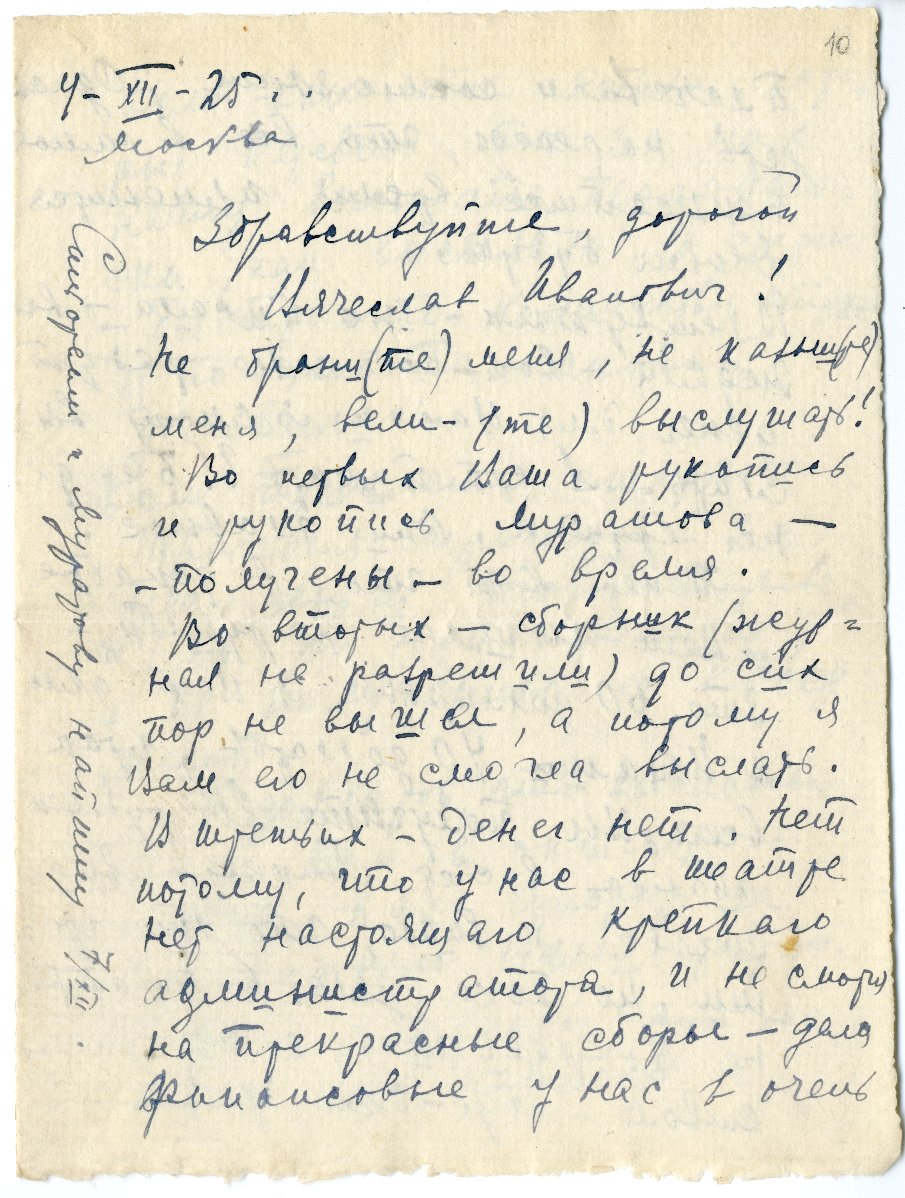 10
4-XII-25 г.
Москва
Здравствуйте, дорогой
Вячеслав Иванович!
Не брани(те) меня, не казни(те)
меня, вели-(те) выслушать!
Во первых Ваша рукопись
и рукопись Муратова —
- получены - во время.
Во вторых — сборник (жур=
нал не разрешили) до сих
пор не вышел, а потому я
Вам его не смогла выслать.
В третьих - денег нет. Нет
потому, что у нас в театре
нет настоящаго крепкаго
администратора, и не смотря
на прекрасные сборы — дела
финансовые у нас в очень
Муратову напишу 7/XII.